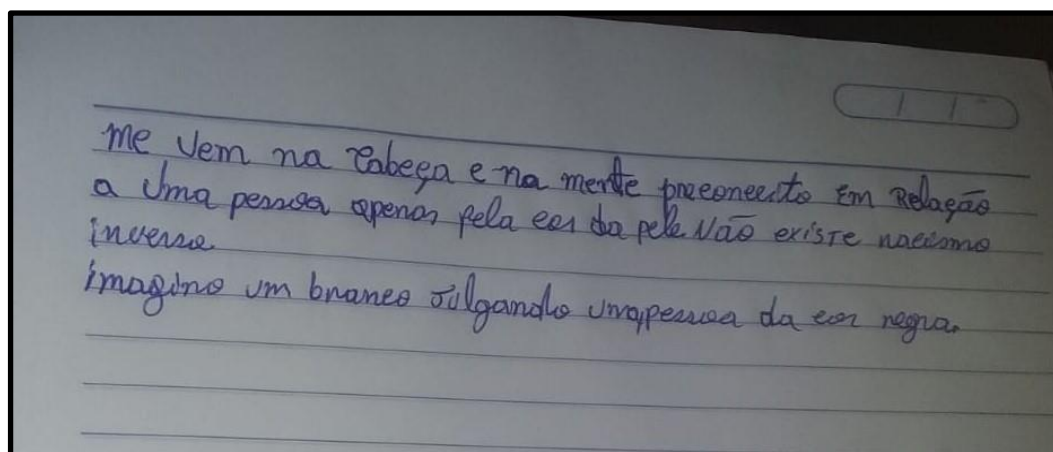 me vem na cabeça e na mente preconceito Em Relação
a Uma pessoa apenas pela cor da pele Não existe racismo
inverso
imagino um branco Julgando uma pessoa da cor negra.